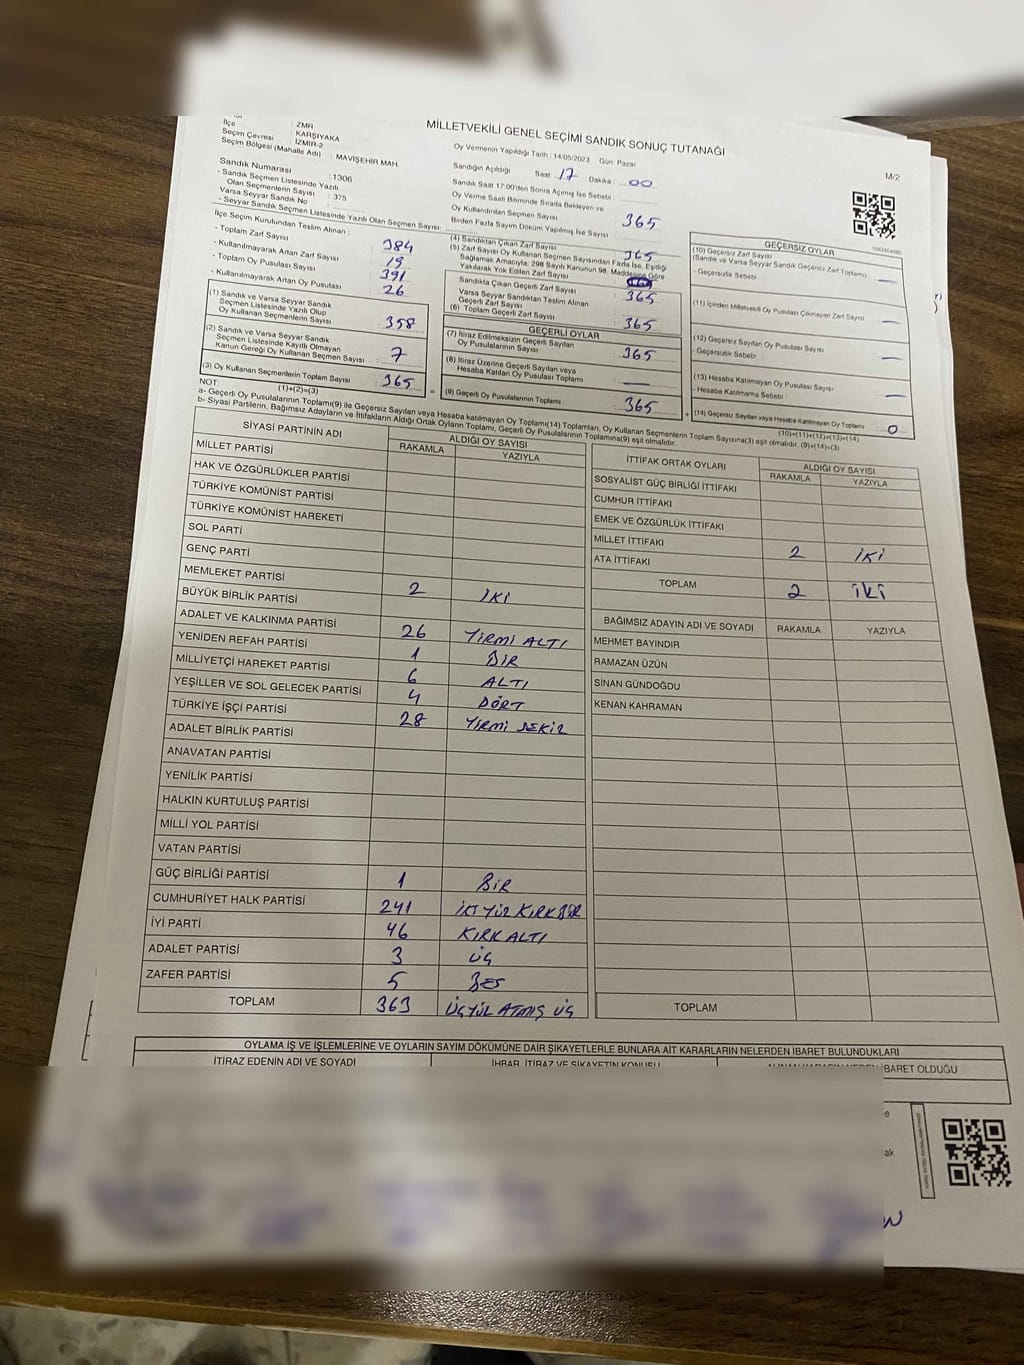 MİLLETVEKİLİ GENEL SEÇİMİ SANDIK SONUÇ TUTANAĞI
M/2
İlçe : KARŞIYAKA
Seçim Çevresi : İZMİR-2
Seçim Bölgesi (Mahalle Adı) : MAVİŞEHİR MAH.
Sandık Numarası : 1306
- Sandık Seçmen Listesinde Yazılı
Olan Seçmenlerin Sayısı : 375
Varsa Seyyar Sandık No :
- Seyyar Sandık Seçmen Listesinde Yazılı Olan Seçmen Sayısı:
Oy Vermenin Yapıldığı Tarih : 14/05/2023 Gün: Pazar
Sandığın Açıldığı Saat : 17 Dakika : 00
Sandık Saat 17:00'den Sonra Açılmış İse Sebebi :
Oy Verme Saati Bitiminde Sırada Bekleyen ve
Oy Kullandırılan Seçmen Sayısı
Birden Fazla Sayım Döküm Yapılmış İse Sayısı : 365
İlçe Seçim Kurulundan Teslim Alınan :
- Toplam Zarf Sayısı : 384
- Kullanılmayarak Artan Zarf Sayısı : 19
- Toplam Oy Pusulası Sayısı : 391
- Kullanılmayarak Artan Oy Pusulası : 26
(1) Sandık ve Varsa Seyyar Sandık
Seçmen Listesinde Yazılı Olup
Oy Kullanan Seçmenlerin Sayısı : 358
(2) Sandık ve Varsa Seyyar Sandık
Seçmen Listesinde Kayıtlı Olmayan
Kanun Gereği Oy Kullanan Seçmen Sayısı : 7
(3) Oy Kullanan Seçmenlerin Toplam Sayısı : 365
(1)+(2)=(3)
(4) Sandıktan Çıkan Zarf Sayısı : 365
(5) Zarf Sayısı Oy Kullanan Seçmen Sayısından Fazla İse, Eşitliği
Sağlamak Amacıyla, 298 Sayılı Kanunun 98. Maddesine Göre
Yakılarak Yok Edilen Zarf Sayısı :
Sandıkta Çıkan Geçerli Zarf Sayısı : 365
Varsa Seyyar Sandıktan Teslim Alınan
Geçerli Zarf Sayısı :
(6) Toplam Geçerli Zarf Sayısı : 365
GEÇERLİ OYLAR
(7) İtiraz Edilmeksizin Geçerli Sayılan
Oy Pusulalarının Sayısı : 365
(8) İtiraz Üzerine Geçerli Sayılan veya
Hesaba Katılan Oy Pusulası Toplamı : —
(9) Geçerli Oy Pusulalarının Toplamı : 365
GEÇERSİZ OYLAR
(10) Geçersiz Zarf Sayısı
(Sandık ve Varsa Seyyar Sandık Geçersiz Zarf Toplamı) : —
- Geçersizlik Sebebi :
(11) İçinden Milletvekili Oy Pusulası Çıkmayan Zarf Sayısı : —
(12) Geçersiz Sayılan Oy Pusulası Sayısı : —
- Geçersizlik Sebebi :
(13) Hesaba Katılmayan Oy Pusulası Sayısı : —
- Hesaba Katılmama Sebebi :
(14) Geçersiz Sayılan veya Hesaba Katılmayan Oy Toplamı : 0
(10)+(11)+(12)+(13)=(14)
NOT:
a- Geçerli Oy Pusulalarının Toplamı(9) ile Geçersiz Sayılan veya Hesaba katılmayan Oy Toplamı(14) Toplamları, Oy Kullanan Seçmenlerin Toplam Sayısına(3) eşit olmalıdır. (9)+(14)=(3)
b- Siyasi Partilerin, Bağımsız Adayların ve İttifakların Aldığı Ortak Oyların Toplamı, Geçerli Oy Pusulalarının Toplamına(9) eşit olmalıdır.
SİYASİ PARTİNİN ADI ALDIĞI OY SAYISI
RAKAMLA YAZIYLA
MİLLET PARTİSİ
HAK VE ÖZGÜRLÜKLER PARTİSİ
TÜRKİYE KOMÜNİST PARTİSİ
TÜRKİYE KOMÜNİST HAREKETİ
SOL PARTİ
GENÇ PARTİ
MEMLEKET PARTİSİ 2 İKİ
BÜYÜK BİRLİK PARTİSİ
ADALET VE KALKINMA PARTİSİ 26 YİRMİ ALTI
YENİDEN REFAH PARTİSİ 1 BİR
MİLLİYETÇİ HAREKET PARTİSİ 6 ALTI
YEŞİLLER VE SOL GELECEK PARTİSİ 4 DÖRT
TÜRKİYE İŞÇİ PARTİSİ 28 YİRMİ SEKİZ
ADALET BİRLİK PARTİSİ
ANAVATAN PARTİSİ
YENİLİK PARTİSİ
HALKIN KURTULUŞ PARTİSİ
MİLLİ YOL PARTİSİ
VATAN PARTİSİ
GÜÇ BİRLİĞİ PARTİSİ 1 BİR
CUMHURİYET HALK PARTİSİ 241 İKİ YÜZ KIRK BİR
İYİ PARTİ 46 KIRK ALTI
ADALET PARTİSİ 3 ÜÇ
ZAFER PARTİSİ 5 BEŞ
TOPLAM 363 ÜÇYÜZ ATMIŞ ÜÇ
İTTİFAK ORTAK OYLARI ALDIĞI OY SAYISI
RAKAMLA YAZIYLA
SOSYALİST GÜÇ BİRLİĞİ İTTİFAKI
CUMHUR İTTİFAKI
EMEK VE ÖZGÜRLÜK İTTİFAKI
MİLLET İTTİFAKI 2 İKİ
ATA İTTİFAKI
TOPLAM 2 İKİ
BAĞIMSIZ ADAYIN ADI VE SOYADI RAKAMLA YAZIYLA
MEHMET BAYINDIR
RAMAZAN ÜZÜN
SİNAN GÜNDOĞDU
KENAN KAHRAMAN
TOPLAM
OYLAMA İŞ VE İŞLEMLERİNE VE OYLARIN SAYIM DÖKÜMÜNE DAİR ŞİKAYETLERLE BUNLARA AİT KARARLARIN NELERDEN İBARET BULUNDUKLARI
İTİRAZ EDENİN ADI VE SOYADI İHBAR, İTİRAZ VE ŞİKAYETİN KONUSU
İBARET OLDUĞU